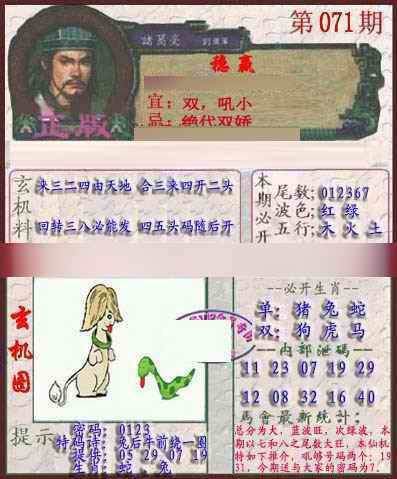 第071期
諸葛亮
稳赢
宜：双，吼小
忌：绝代双娇
正版
玄机料
来三二四由天地 合三来四开二头
回转三八必能发 四五头码随后开
本期必开
尾数：012367
波色：红 绿
五行：木 火 土
玄机图
--必开生肖--
单：猪 兔 蛇
双：狗 虎 马
--内部泄码--
11 23 07 19 29
12 08 32 16 40
馬會最新統计：
总分为大，蓝波旺，次绿波，本
期以七和八之尾数大旺，本仙机
特如下推介，吼够号码两个：19
31，今期送与大家的密码为7.
提示
密码：0123
特码诗：兔后牛前绕一圈
提倍：05 29 07 19
生肖：蛇、兔